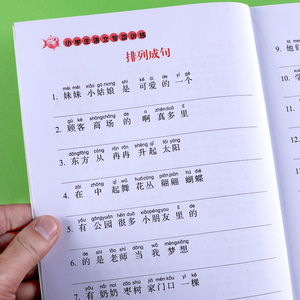 小学生语文专项训练
排列成句
mèi mei xiǎo gū niang shì kě ài de yí gè
1. 妹妹 小姑娘 是 可爱 的 一个
gù kè shāngchǎng de a zhēnduō lǐ
2. 顾客 商场 的 啊 真多 里
dōngfāng cóng rǎn rǎn shēng qǐ tài yáng
3. 东方 从 冉冉 升起 太阳
zài zhōng qǐ wǔ huācóng piān piān hú dié
4. 在 中 起舞 花丛 翩翩 蝴蝶
yǒu gōngyuán hěn duō xiǎopéngyou lǐ de
5. 有 公园 很多 小朋友 里的
de shì lǎo shī dāng wǒ mèngxiǎng
6. 的 是 老师 当 我 梦想
yǒu nǎi nai zǎo shù jiā ménkǒu yì kē
7. 有 奶奶 枣树 家门口 一棵
9. 他们
10.
11.
12.